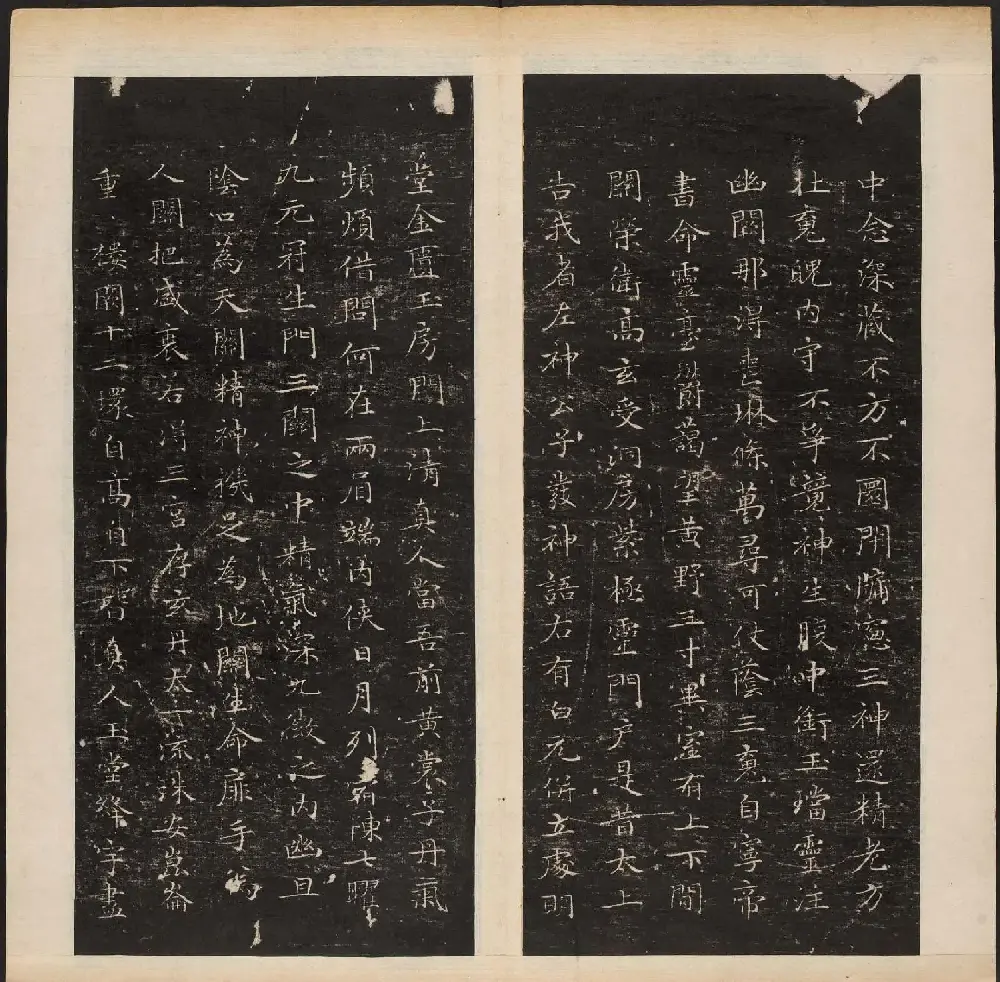 中念深藏不方不圓閉牖窓三神還精老方
壯䰟魄内守不爭競神生腹中銜玉璫靈注
幽闕那得喪琳條萬尋可仗蔭三䰟自寧帝
書命靈臺欝藹望黃野三寸異室有上下間
關榮衛髙玄受洞房紫極靈門戶是昔太上
告我者左神公子發神語右有白元併立處明
堂金匱玉房間上清真人當吾前黃裳子丹氣
頻煩借問何在兩眉端内俠日月列宿陳七曜
九元冠生門三關之中精氣深九微之内幽且
陰口為天關精神機足為地關生命扉手為
人關把盛衰若得三宮存玄丹太一流珠安崑崙
重重樓閣十二環自髙自下皆真人玉堂絳宇盡